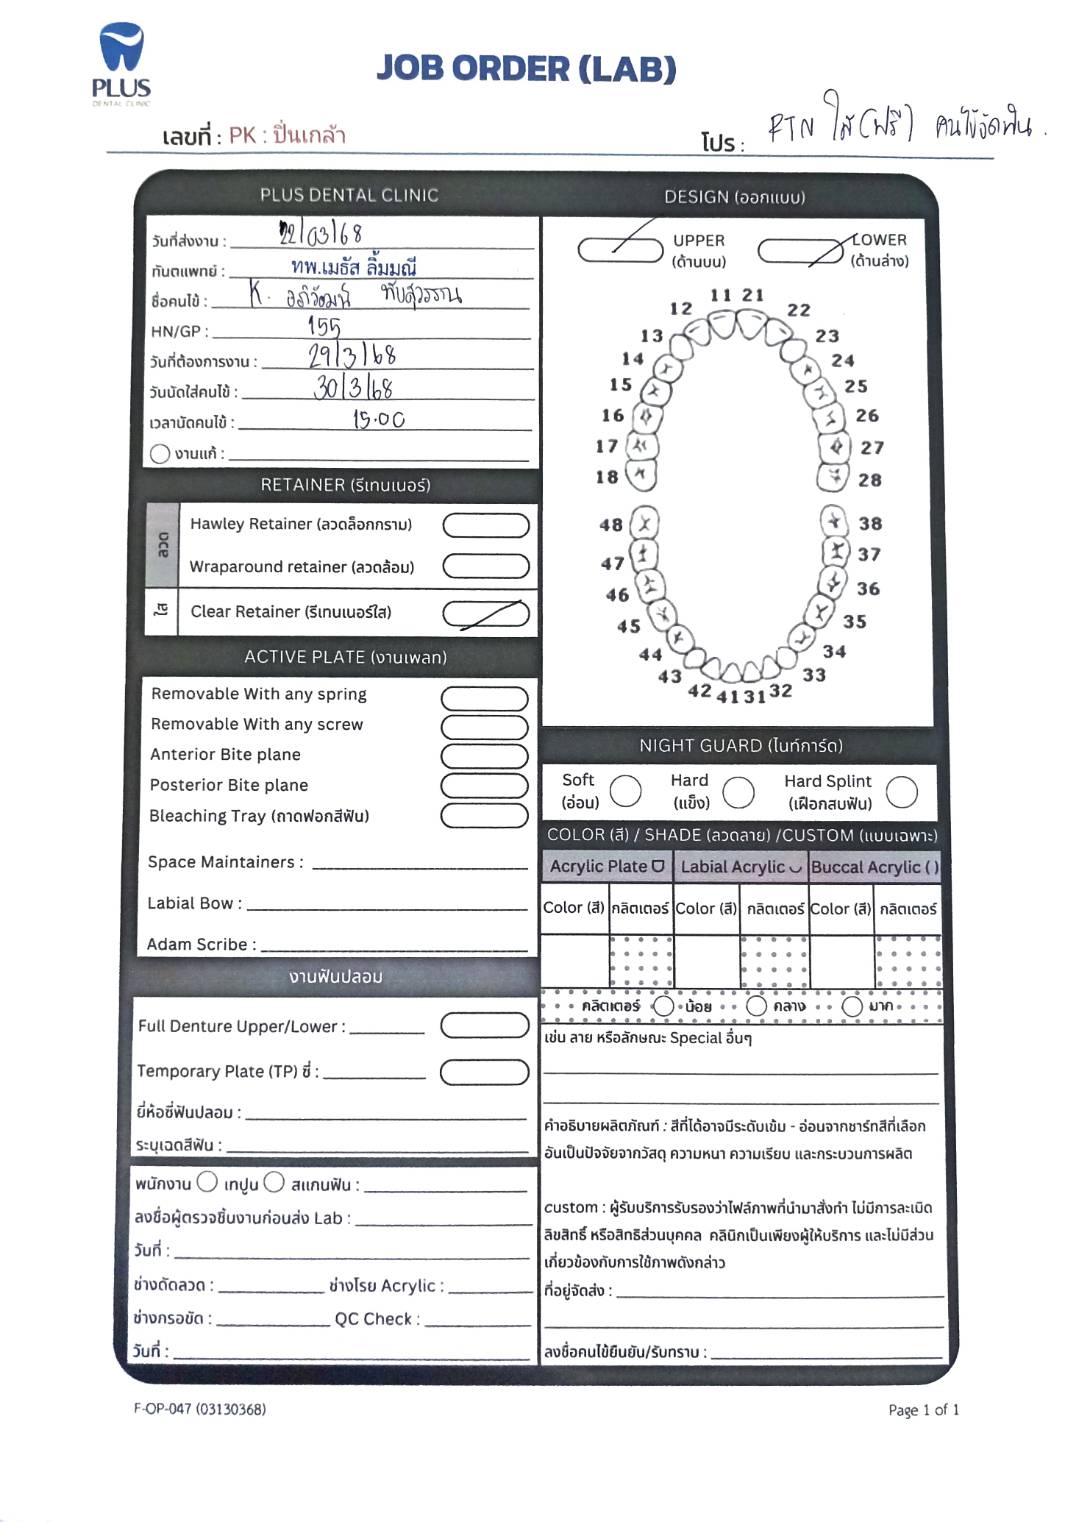 PLUS
DENTAL CLINIC
JOB ORDER (LAB)
เลขที่ : PK : ปิ่นเกล้า
โปร : RTN ใส (ฟรี) คนไข้จัดฟัน.
PLUS DENTAL CLINIC
วันที่ส่งงาน : 22/03/68
ทันตแพทย์ : ทพ.เมธัส ลิ้มมณี
ชื่อคนไข้ : K. อภิวัฒน์ ทับสุวรรณ
HN/GP : 155
วันที่ต้องการงาน : 29/3/68
วันนัดใส่คนไข้ : 30/3/68
เวลานัดคนไข้ : 15.00
งานแก้ :
RETAINER (รีเทนเนอร์)
ลวด
Hawley Retainer (ลวดล็อกกราม)
Wraparound retainer (ลวดล้อม)
ใส
Clear Retainer (รีเทนเนอร์ใส)
ACTIVE PLATE (งานเพลท)
Removable With any spring
Removable With any screw
Anterior Bite plane
Posterior Bite plane
Bleaching Tray (ถาดฟอกสีฟัน)
Space Maintainers :
Labial Bow :
Adam Scribe :
งานฟันปลอม
Full Denture Upper/Lower :
Temporary Plate (TP) ซี่ :
ยี่ห้อซี่ฟันปลอม :
ระบุเฉดสีฟัน :
พนักงาน เทปูน สแกนฟัน :
ลงชื่อผู้ตรวจชิ้นงานก่อนส่ง Lab :
วันที่ :
ช่างดัดลวด : ช่างโรย Acrylic :
ช่างกรอขัด : QC Check :
วันที่ :
DESIGN (ออกแบบ)
UPPER LOWER
(ด้านบน) (ด้านล่าง)
11 21
12 22
13 23
14 24
15 25
16 26
17 27
18 28
48 38
47 37
46 36
45 35
44 34
43 33
42 41 31 32
NIGHT GUARD (ไนท์การ์ด)
Soft Hard Hard Splint
(อ่อน) (แข็ง) (เฝือกสบฟัน)
COLOR (สี) / SHADE (ลวดลาย) /CUSTOM (แบบเฉพาะ)
Acrylic Plate Labial Acrylic Buccal Acrylic ( )
Color (สี) กลิตเตอร์ Color (สี) กลิตเตอร์ Color (สี) กลิตเตอร์
กลิตเตอร์ น้อย กลาง มาก
เช่น ลาย หรือลักษณะ Special อื่นๆ
คำอธิบายผลิตภัณฑ์ : สีที่ได้อาจมีระดับเข้ม - อ่อนจากชาร์ทสีที่เลือก
อันเป็นปัจจัยจากวัสดุ ความหนา ความเรียบ และกระบวนการผลิต
custom : ผู้รับบริการรับรองว่าไฟล์ภาพที่นำมาสั่งทำ ไม่มีการละเมิด
ลิขสิทธิ์ หรือสิทธิส่วนบุคคล คลินิกเป็นเพียงผู้ให้บริการ และไม่มีส่วน
เกี่ยวข้องกับการใช้ภาพดังกล่าว
ที่อยู่จัดส่ง :
ลงชื่อคนไข้ยืนยัน/รับทราบ :
F-OP-047 (03130368)
Page 1 of 1